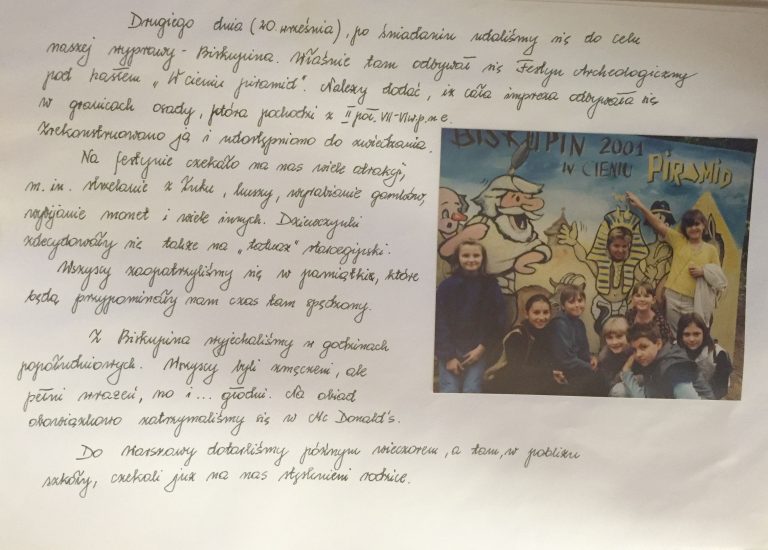 Drugiego dnia (20 września), po śniadaniu udaliśmy się do celu
naszej wyprawy - Biskupina. Właśnie tam odbywał się Festyn Archeologiczny
pod hasłem „W cieniu piramid". Należy dodać, iż cała impreza odbywała się
w granicach osady, która pochodzi z II poł. VII-VI w.p.n.e.
Zrekonstruowano ją i udostępniono do zwiedzania.
Na festynie czekało na nas wiele atrakcji,
m.in. strzelanie z łuku, kuszy, wyrabianie garnków,
wybijanie monet i wiele innych. Dziewczynki
zdecydowały się także na „tatuaż" staroegipski.
Wszyscy zaopatrzyliśmy się w pamiątki, które
będą przypominały nam czas tam spędzony.
Z Biskupina wyjechaliśmy w godzinach
popołudniowych. Wszyscy byli zmęczeni, ale
pełni wrażeń, no i... głodni. Na obiad
obowiązkowo zatrzymaliśmy się w Mc Donald's.
Do Warszawy dotarliśmy późnym wieczorem, a tam, w pobliżu
szkoły, czekali już na nas stęsknieni rodzice.
BISKUPIN 2001
W CIENIU PIRAMID